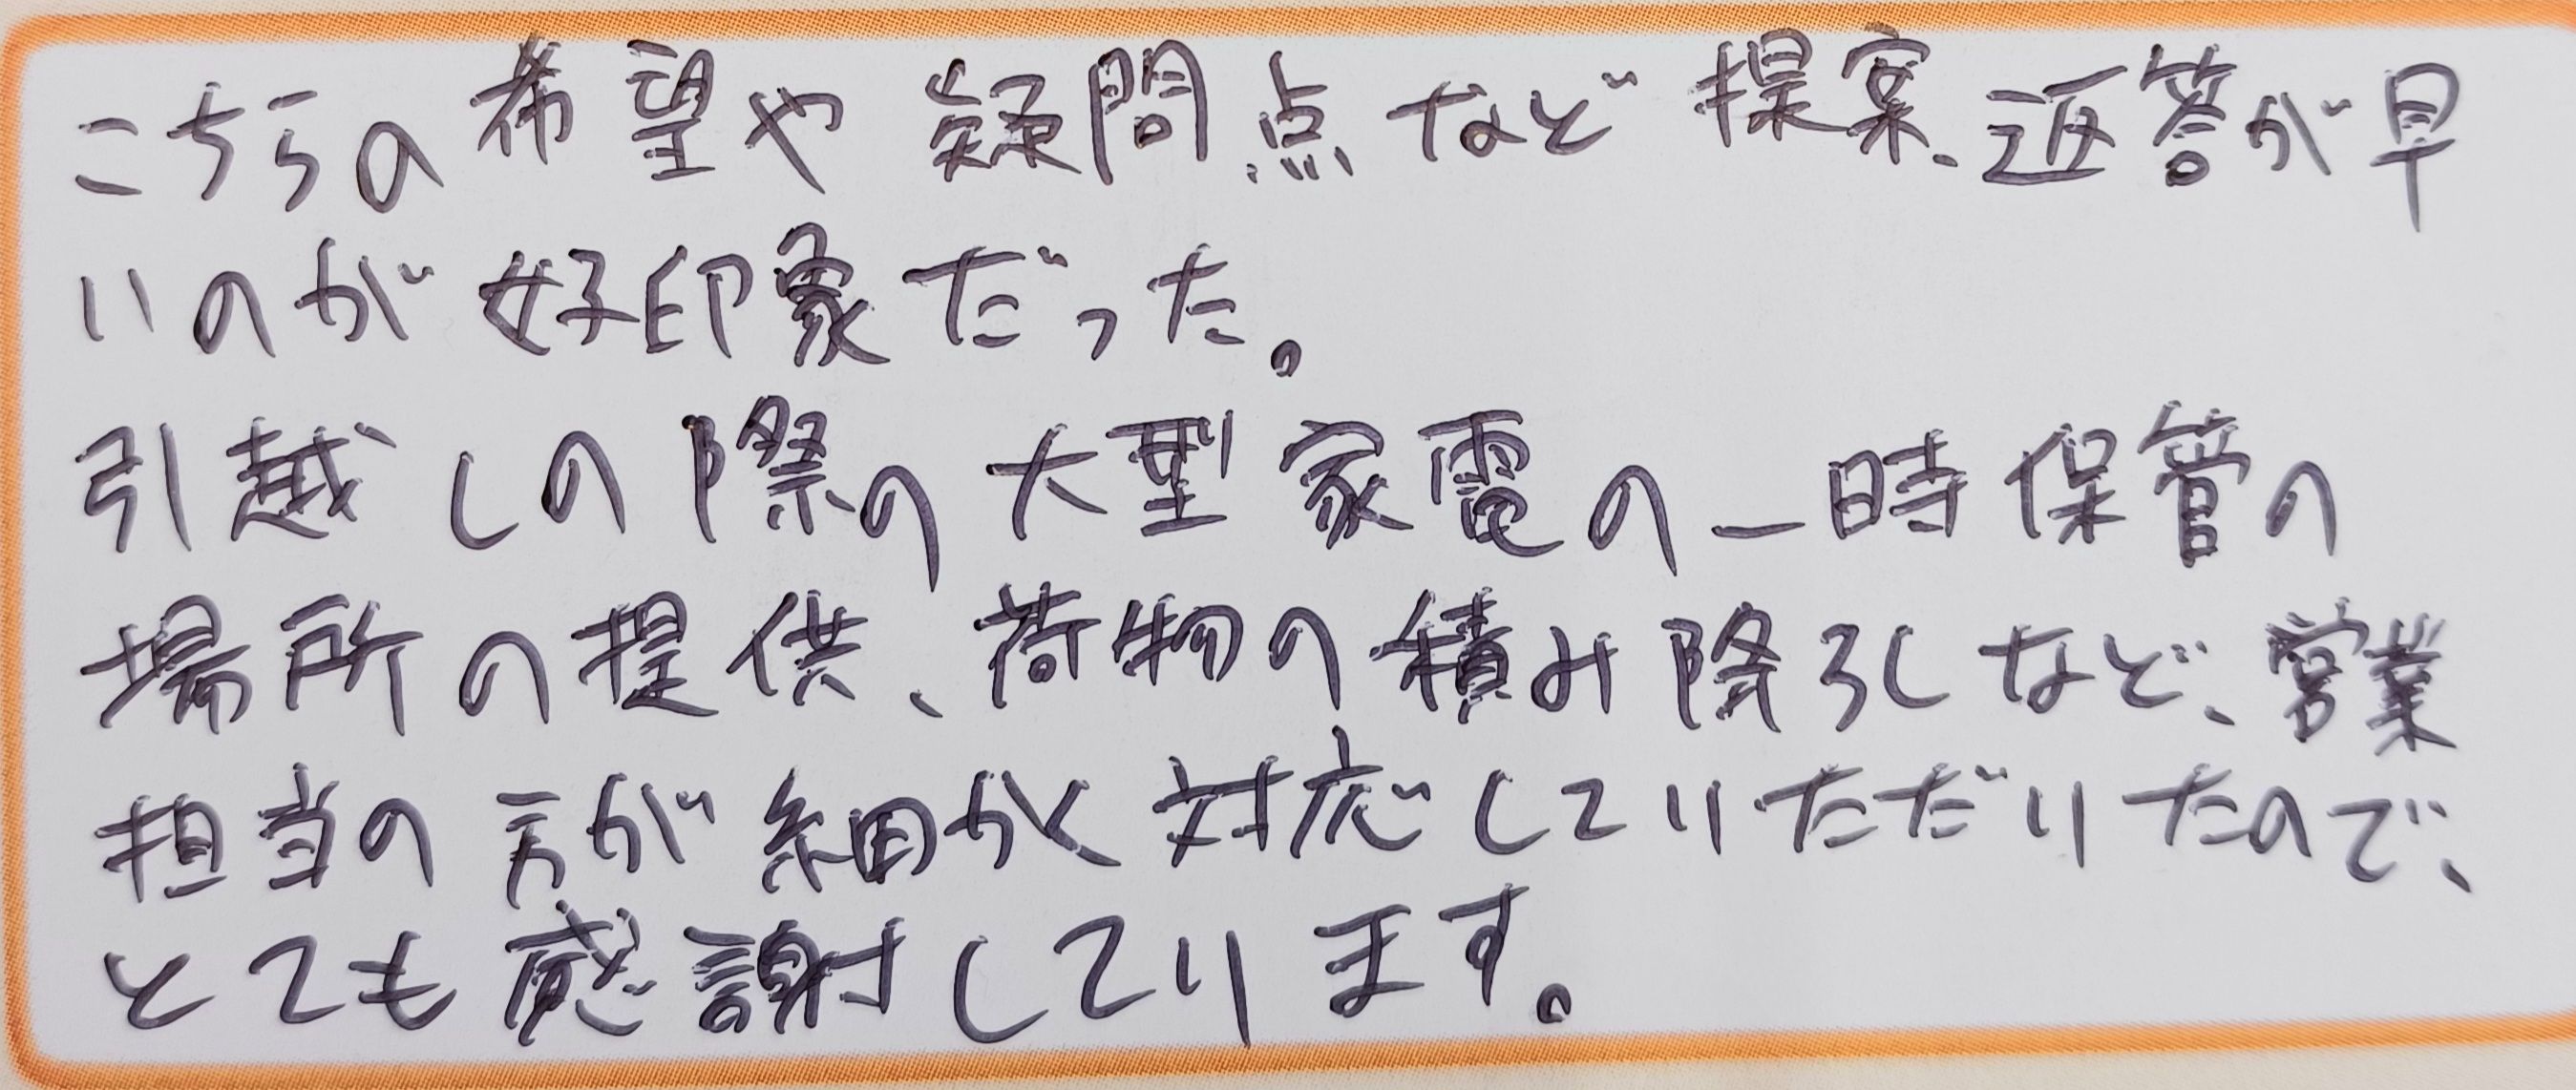 こちらの希望や疑問点など提案、返答が早
いのが好印象だった。
引越しの際の大型家電の一時保管の
場所の提供、荷物の積み降ろしなど、営業
担当の方が細かく対応していただいたので、
とても感謝しています。